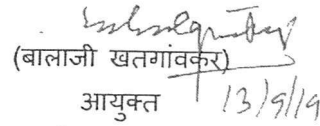 (बालाजी खतगांवकर)
आयुक्त 13/9/19